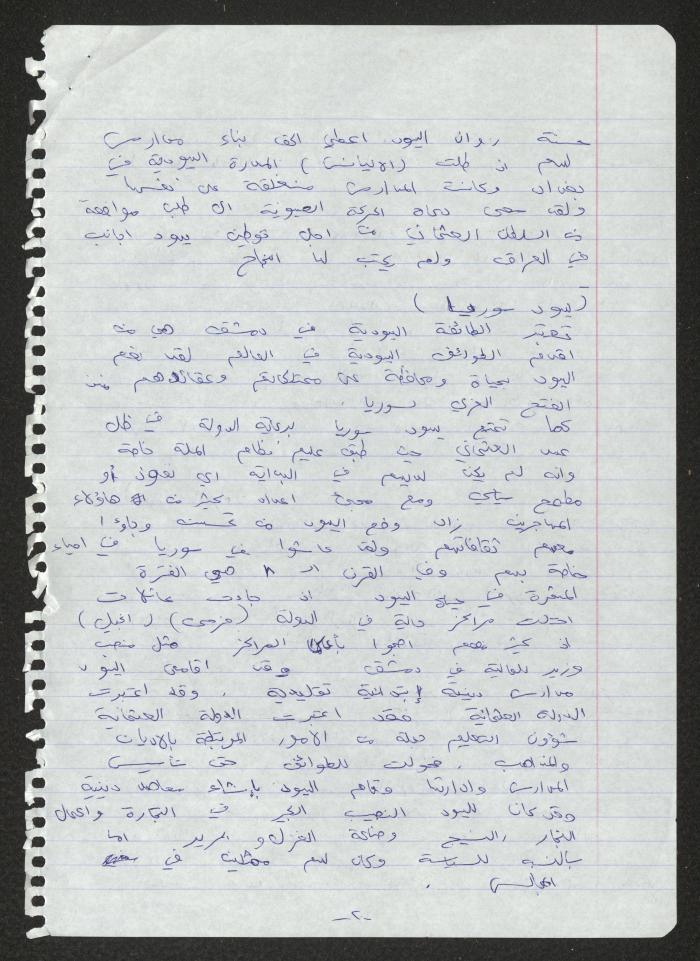 حسنة وان اليهود اعطي الحق بناء مدارس
لهم اذ ظلت (الاليانس) المدرسة اليهودية في
بغداد وكانت المدارس منغلقة على نفسها
ولقد سعى دعاة الحركة الصهيونية الى طلب موافقة
من السلطان العثماني من اجل توطين يهود اجانب
في العراق ولم يكتب لها النجاح
(يهود سوريا)
تعتبر الطائفة اليهودية في دمشق هي من
اقدم الطوائف اليهودية في العالم لقد نعم
اليهود بحياة ومحافظة على ممتلكاتهم وعقائدهم منذ
الفتح العربي لسوريا .
كما تمتع يهود سوريا برعاية الدولة في ظل
عهد العثماني حيث طبق عليهم نظام الملة خاصة
وانه لم يكن لديهم في البداية اي نفوذ أو
مطمح سياسي ومع مجيء اعداد كثيرة من هاؤلاء
المهاجرين زاد وضع اليهود من تحسنه وجاؤا
معهم ثقافاتهم ولقد عاشوا في سوريا في احياء
خاصة بهم وفي القرن الـ ١٨ هي الفترة
في حياة اليهود اذ جاءت عائلات
احتلت مراكز مالية في الدولة (فرحي)
اذ كثير منهم اصبحوا بأعلى المراكز مثل منصب
وزير للمالية في دمشق وقد اقامى اليهود
مدارس دينية إبتدائية تقليدية . وقد اعتبرت
الدولة العثمانية فقد اعتبرت الدولة العثمانية
شؤون التعليم جزء من الأمور المرتبطة بالاديان
والمذاهب . فخولت للطوائف حق تأسيس
المدارس وادارتها وقام اليهود بإنشاء معاهد دينية
وقد كان لليهود النصيب الكبير في التجارة واعمال
التجار النسيج وصناعة الغزل و الحرير اما
بالنسبه للسياسة وكان لهم ممثلين في
المجالس .
-٢-